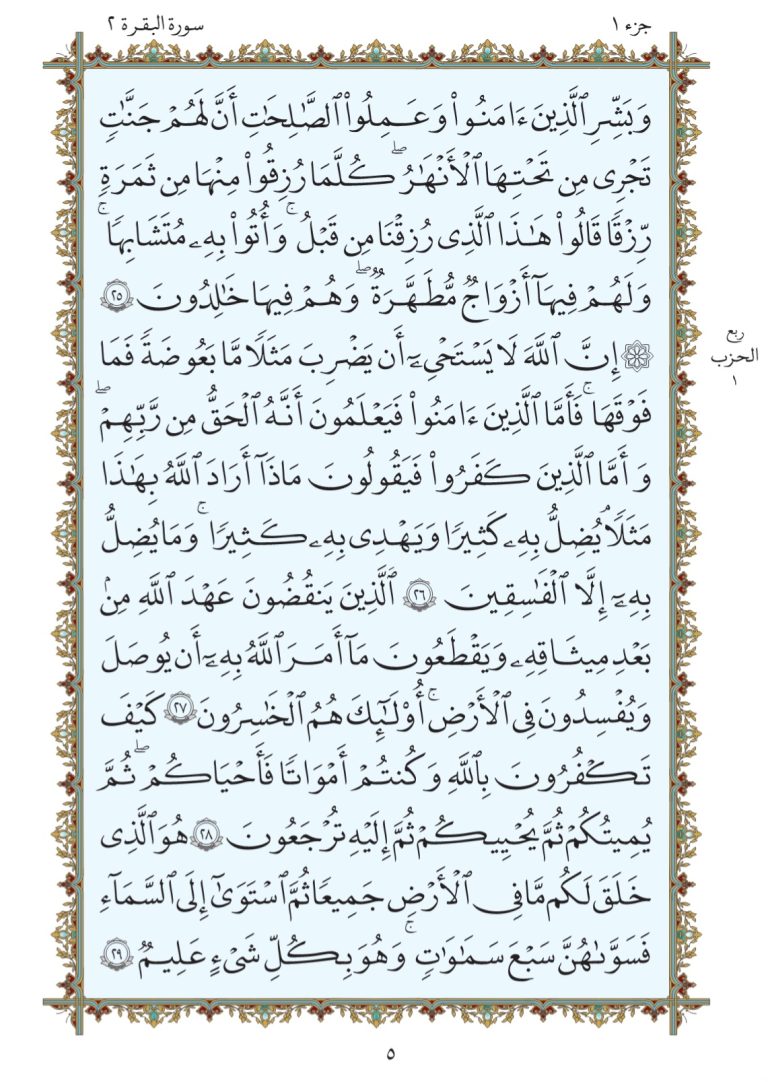 جزء ١
سورة البقرة ٢
وَبَشِّرِ ٱلَّذِينَ ءَامَنُوا۟ وَعَمِلُوا۟ ٱلصَّـٰلِحَـٰتِ أَنَّ لَهُمْ جَنَّـٰتٍ
تَجْرِى مِن تَحْتِهَا ٱلْأَنْهَـٰرُ ۖ كُلَّمَا رُزِقُوا۟ مِنْهَا مِن ثَمَرَةٍ
رِّزْقًا قَالُوا۟ هَـٰذَا ٱلَّذِى رُزِقْنَا مِن قَبْلُ ۖ وَأُتُوا۟ بِهِۦ مُتَشَـٰبِهًا ۖ
وَلَهُمْ فِيهَآ أَزْوَٰجٌ مُّطَهَّرَةٌ ۖ وَهُمْ فِيهَا خَـٰلِدُونَ ٢٥
۞ إِنَّ ٱللَّهَ لَا يَسْتَحْىِۦٓ أَن يَضْرِبَ مَثَلًا مَّا بَعُوضَةً فَمَا
ربع
الحزب
١
فَوْقَهَا ۚ فَأَمَّا ٱلَّذِينَ ءَامَنُوا۟ فَيَعْلَمُونَ أَنَّهُ ٱلْحَقُّ مِن رَّبِّهِمْ ۖ
وَأَمَّا ٱلَّذِينَ كَفَرُوا۟ فَيَقُولُونَ مَاذَآ أَرَادَ ٱللَّهُ بِهَـٰذَا
مَثَلًا ۘ يُضِلُّ بِهِۦ كَثِيرًا وَيَهْدِى بِهِۦ كَثِيرًا ۚ وَمَا يُضِلُّ
بِهِۦٓ إِلَّا ٱلْفَـٰسِقِينَ ٢٦ ٱلَّذِينَ يَنقُضُونَ عَهْدَ ٱللَّهِ مِنۢ
بَعْدِ مِيثَـٰقِهِۦ وَيَقْطَعُونَ مَآ أَمَرَ ٱللَّهُ بِهِۦٓ أَن يُوصَلَ
وَيُفْسِدُونَ فِى ٱلْأَرْضِ ۚ أُو۟لَـٰٓئِكَ هُمُ ٱلْخَـٰسِرُونَ ٢٧ كَيْفَ
تَكْفُرُونَ بِٱللَّهِ وَكُنتُمْ أَمْوَٰتًا فَأَحْيَـٰكُمْ ۖ ثُمَّ
يُمِيتُكُمْ ثُمَّ يُحْيِيكُمْ ثُمَّ إِلَيْهِ تُرْجَعُونَ ٢٨ هُوَ ٱلَّذِى
خَلَقَ لَكُم مَّا فِى ٱلْأَرْضِ جَمِيعًا ثُمَّ ٱسْتَوَىٰٓ إِلَى ٱلسَّمَآءِ
فَسَوَّىٰهُنَّ سَبْعَ سَمَـٰوَٰتٍ ۚ وَهُوَ بِكُلِّ شَىْءٍ عَلِيمٌ ٢٩
٥